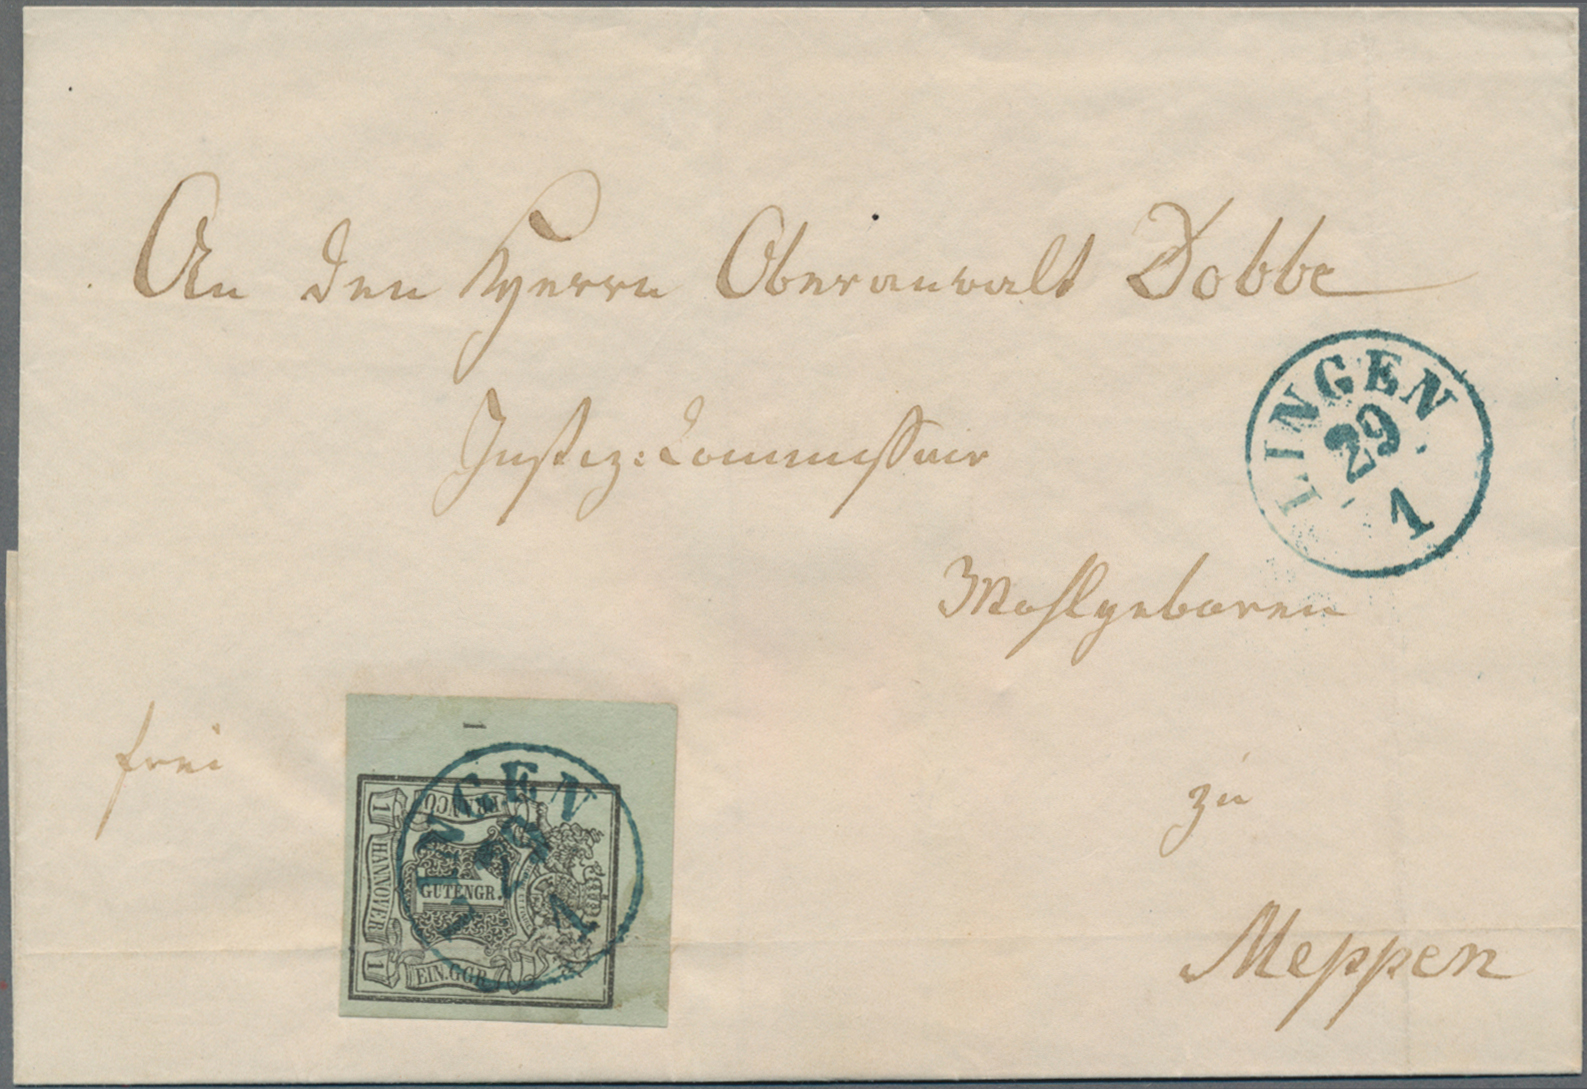 An den Herrn Oberanwalt Dobbe
Justiz-Commissair
Wohlgeboren
LINGEN
29
1
frei
zu
Meppen
1
FRANCO
1
HANNOVER
1
GUTENGR.
EIN.GGR.
LINGEN
29
1